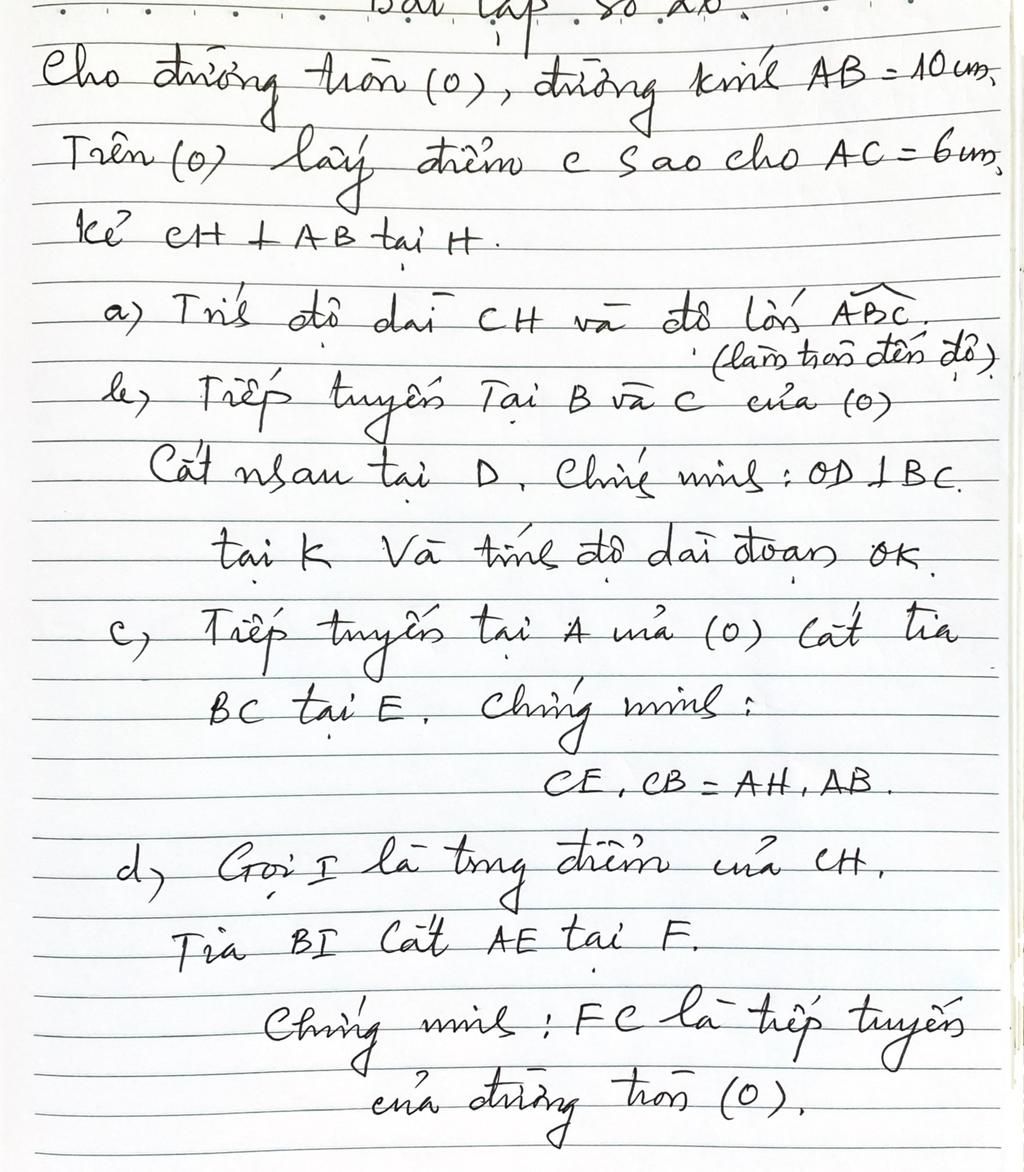 Bài tập số 20.
Cho đường tròn (O), đường kính AB = 10cm,
Trên (O) lấy điểm C sao cho AC = 6cm,
kẻ CH ⊥ AB tại H.
a) Tính độ dài CH và độ lớn \widehat{ABC}.
(làm tròn đến độ)
b) Tiếp tuyến Tại B và C của (O)
Cắt nhau tại D. Chứng minh: OD ⊥ BC.
tại K Và tính độ dài đoạn OK.
c) Tiếp tuyến tại A của (O) Cắt tia
BC tại E. Chứng minh:
CE. CB = AH. AB.
d) Gọi I là trung điểm của CH.
Tia BI Cắt AE tại F.
Chứng minh: FC là tiếp tuyến
của đường tròn (O).